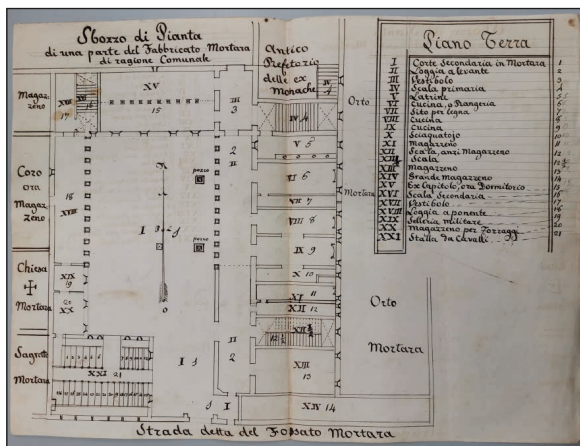 Sbozzo di Pianta
di una parte del Fabbricato, Mortara
di ragione Comunale
Antico
Refetorio
delle ex
Monache
Piano Terra
I Corte Secondaria in Mortara 1
II Loggia a levante 2
III Vestibolo 3
IV Scala primaria 4
V Latrine 5
VI Cucina, o Mangeria 6
VII Sito per legna 7
VIII Cucina 8
IX Cucina 9
X Sciaquatojo 10
XI Magazzeno 11
XII Scala, anzi Magazzeno 12
XII½ Scala 12½
XIII Magazzeno 13
XIV Grande Magazzeno 14
XV Ex Capitolo, ora Dormitorio 15
XVI Scala Secondaria 16
XVII Vestibolo 17
XVIII Loggia a ponente 18
XIX Selleria militare 19
XX Magazzeno per Foraggi 20
XXI Stalla da Cavalli 21
Magaz.
zeno
XVII
17
XVI
16
XV
15
III
3
IV 4
IV 4
Orto
Mortara
Coro
ora
Magaz
zeno
18
XVIII
2
II
pozzo
pozzo
I
V 5
VI 6
VII 7
VIII 8
IX 9
X 10
XI 11
XII 12
XII ½
12 ½
Chiesa
Mortara
XIX
19
20
XX
Orto
Mortara
Sagrato
Mortara
XXI 21
I
II
2
XIII
13
I
XIV 14
Strada detta del Fossato Mortara